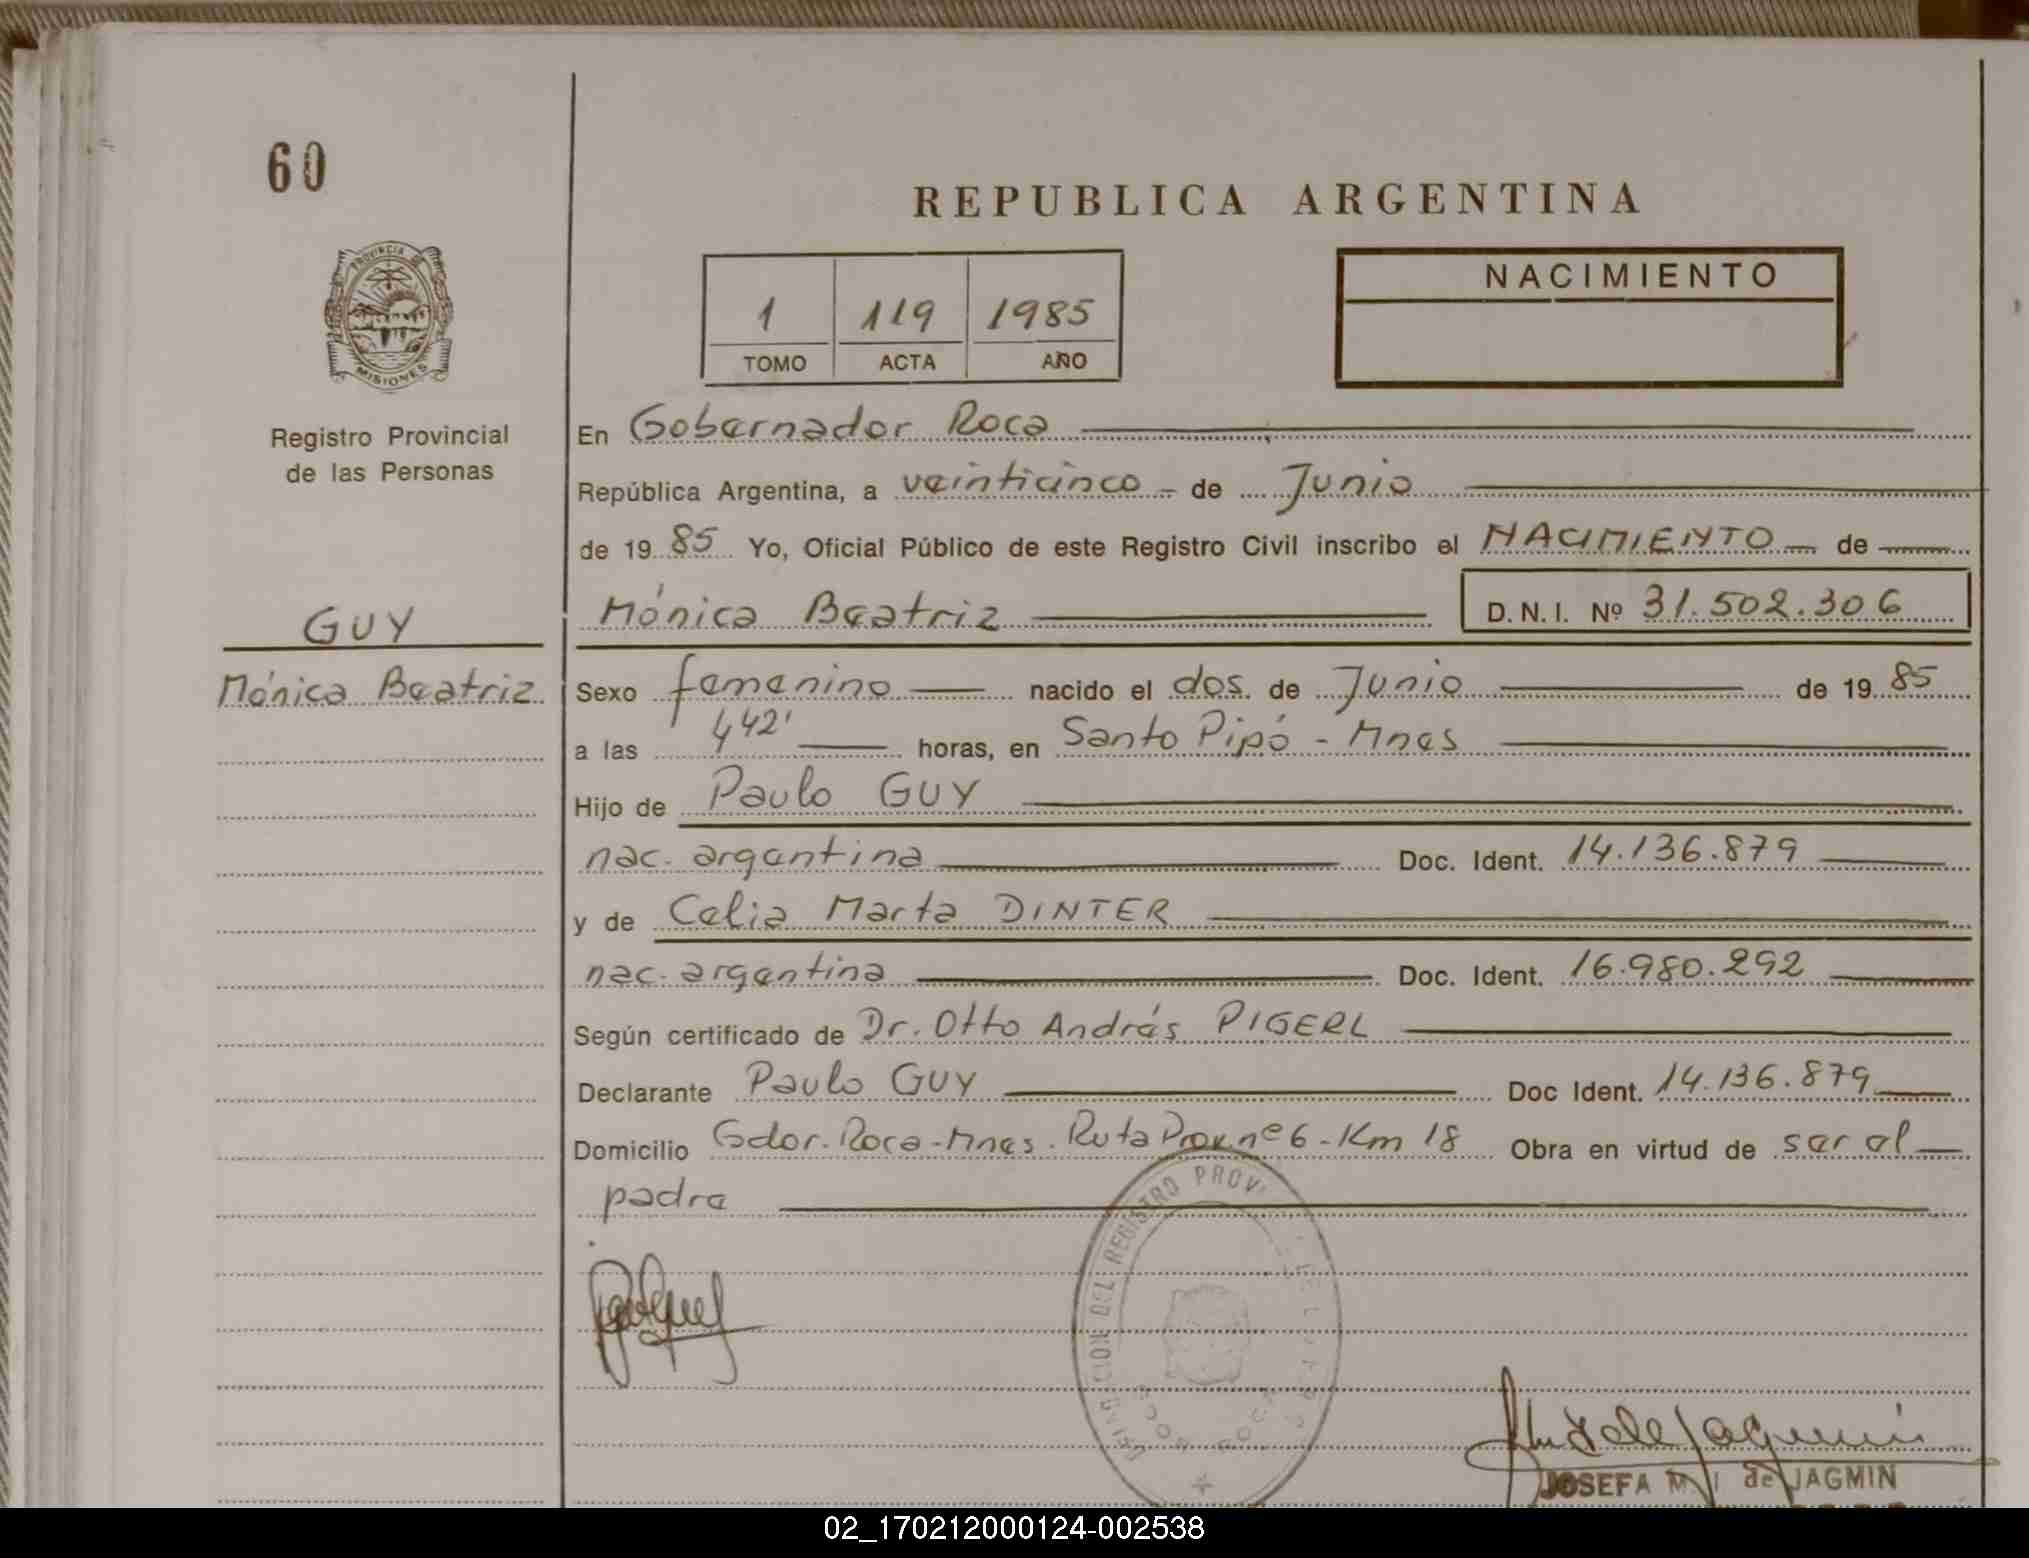 60
REPUBLICA ARGENTINA
PROVINCIA DE MISIONES
Registro Provincial
de las Personas
1 119 1985
TOMO ACTA AÑO
NACIMIENTO
En Gobernador Roca
República Argentina, a veinticinco de Junio
de 1985 Yo, Oficial Público de este Registro Civil inscribo el NACIMIENTO de
Mónica Beatriz D.N.I. Nº 31.502.306
GUY
Mónica Beatriz
Sexo femenino nacido el dos de Junio de 1985
a las 4,42' horas, en Santo Pipó - Mnes
Hijo de Paulo GUY
nac. argentina Doc. Ident. 14.136.879
y de Celia Marta DINTER
nac. argentina Doc. Ident. 16.980.292
Según certificado de Dr. Otto Andrés PIGERL
Declarante Paulo GUY Doc Ident. 14.136.879
Domicilio Gdor. Roca - Mnes. Ruta Prov. nº 6 - Km 18 Obra en virtud de ser el
padre
DEL REGISTRO PROV
JOSEFA M. I. de JAGMIN
02_170212000124-002538